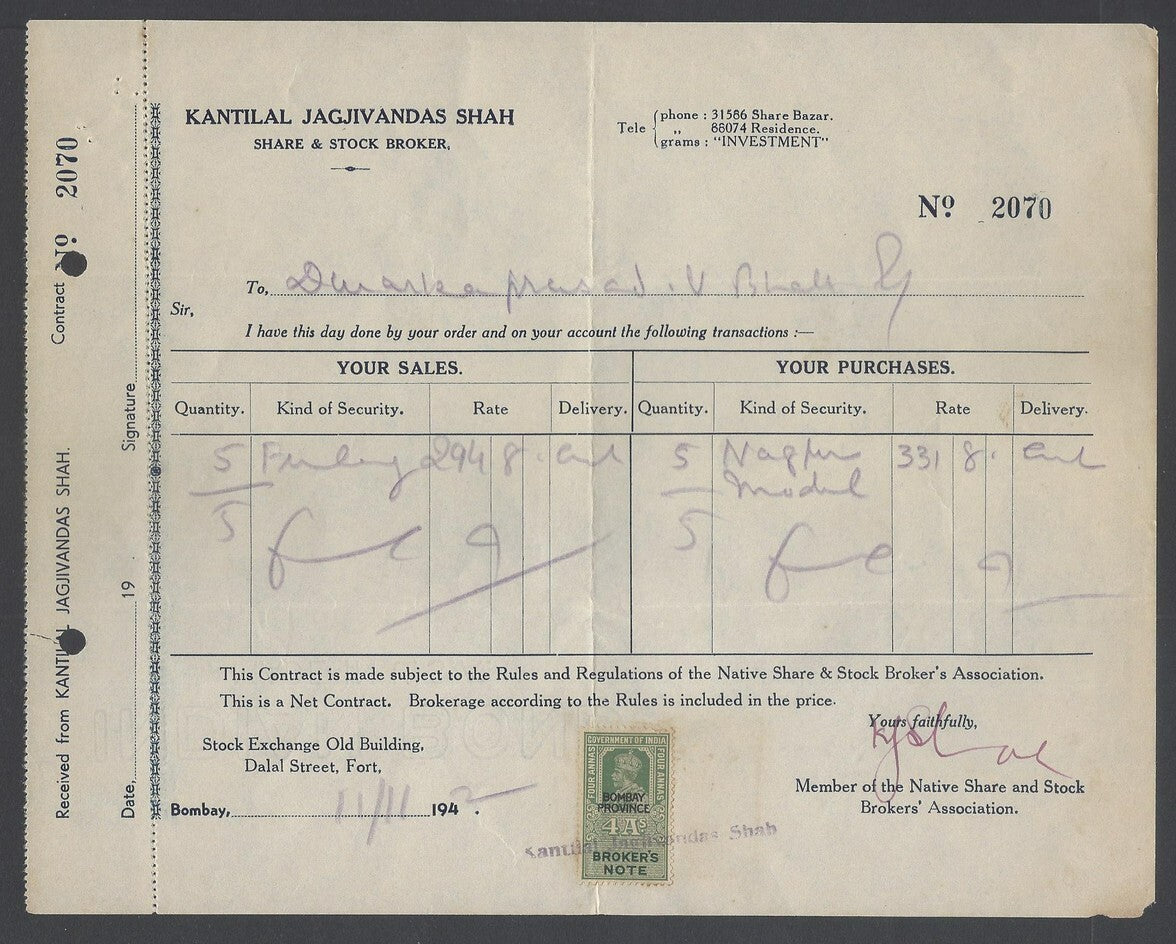 KANTILAL JAGJIVANDAS SHAH
SHARE & STOCK BROKER,
Tele phone : 31586 Share Bazar.
„ 86074 Residence.
grams : "INVESTMENT"
Nº 2070
To, Dwarkaprasad . V Bhatt
Sir,
I have this day done by your order and on your account the following transactions :—
YOUR SALES. YOUR PURCHASES.
Quantity. Kind of Security. Rate Delivery. Quantity. Kind of Security. Rate Delivery.
5 Finlay 294 8 . 5 Nagpur 331 8 .
Model
5 5
This Contract is made subject to the Rules and Regulations of the Native Share & Stock Broker's Association.
This is a Net Contract. Brokerage according to the Rules is included in the price.
Yours faithfully,
KJShah
Stock Exchange Old Building,
Dalal Street, Fort,
Bombay, 11/11 1942.
Member of the Native Share and Stock
Brokers' Association.
GOVERNMENT OF INDIA
FOUR ANNAS FOUR ANNAS
BOMBAY
PROVINCE
4 As
BROKER'S
NOTE
Kantilal Jagjivandas Shah
Contract Nº 2070
Received from KANTILAL JAGJIVANDAS SHAH.
Date, 19 Signature